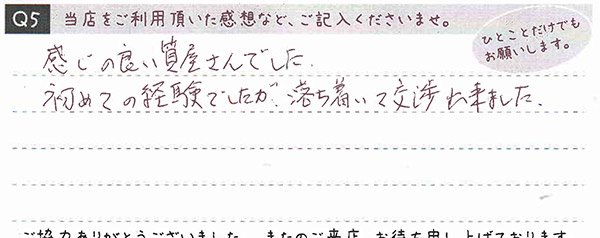 Q5 当店をご利用頂いた感想など、ご記入くださいませ。
ひとことだけでも
お願いします。
感じの良い質屋さんでした.
初めての経験でしたが、落ち着いて交渉出来ました.
ご協力ありがとうございました。またのご来店、お待ち申し上げております